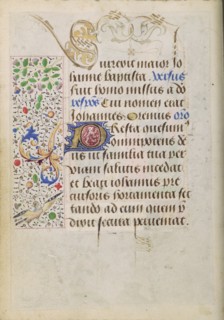 Surrexit maior Jo
hanne baptista. Versus
fuit homo missus a do
respons Cui nomen erat
Johannes. Oremus oro
Presta quesumus
omnipotens de
us ut familia tua per
viam salutis incedat
et beati iohannis pre
cursoris hortamenta sec
tando ad eum quem p
dixit secura perueniat.